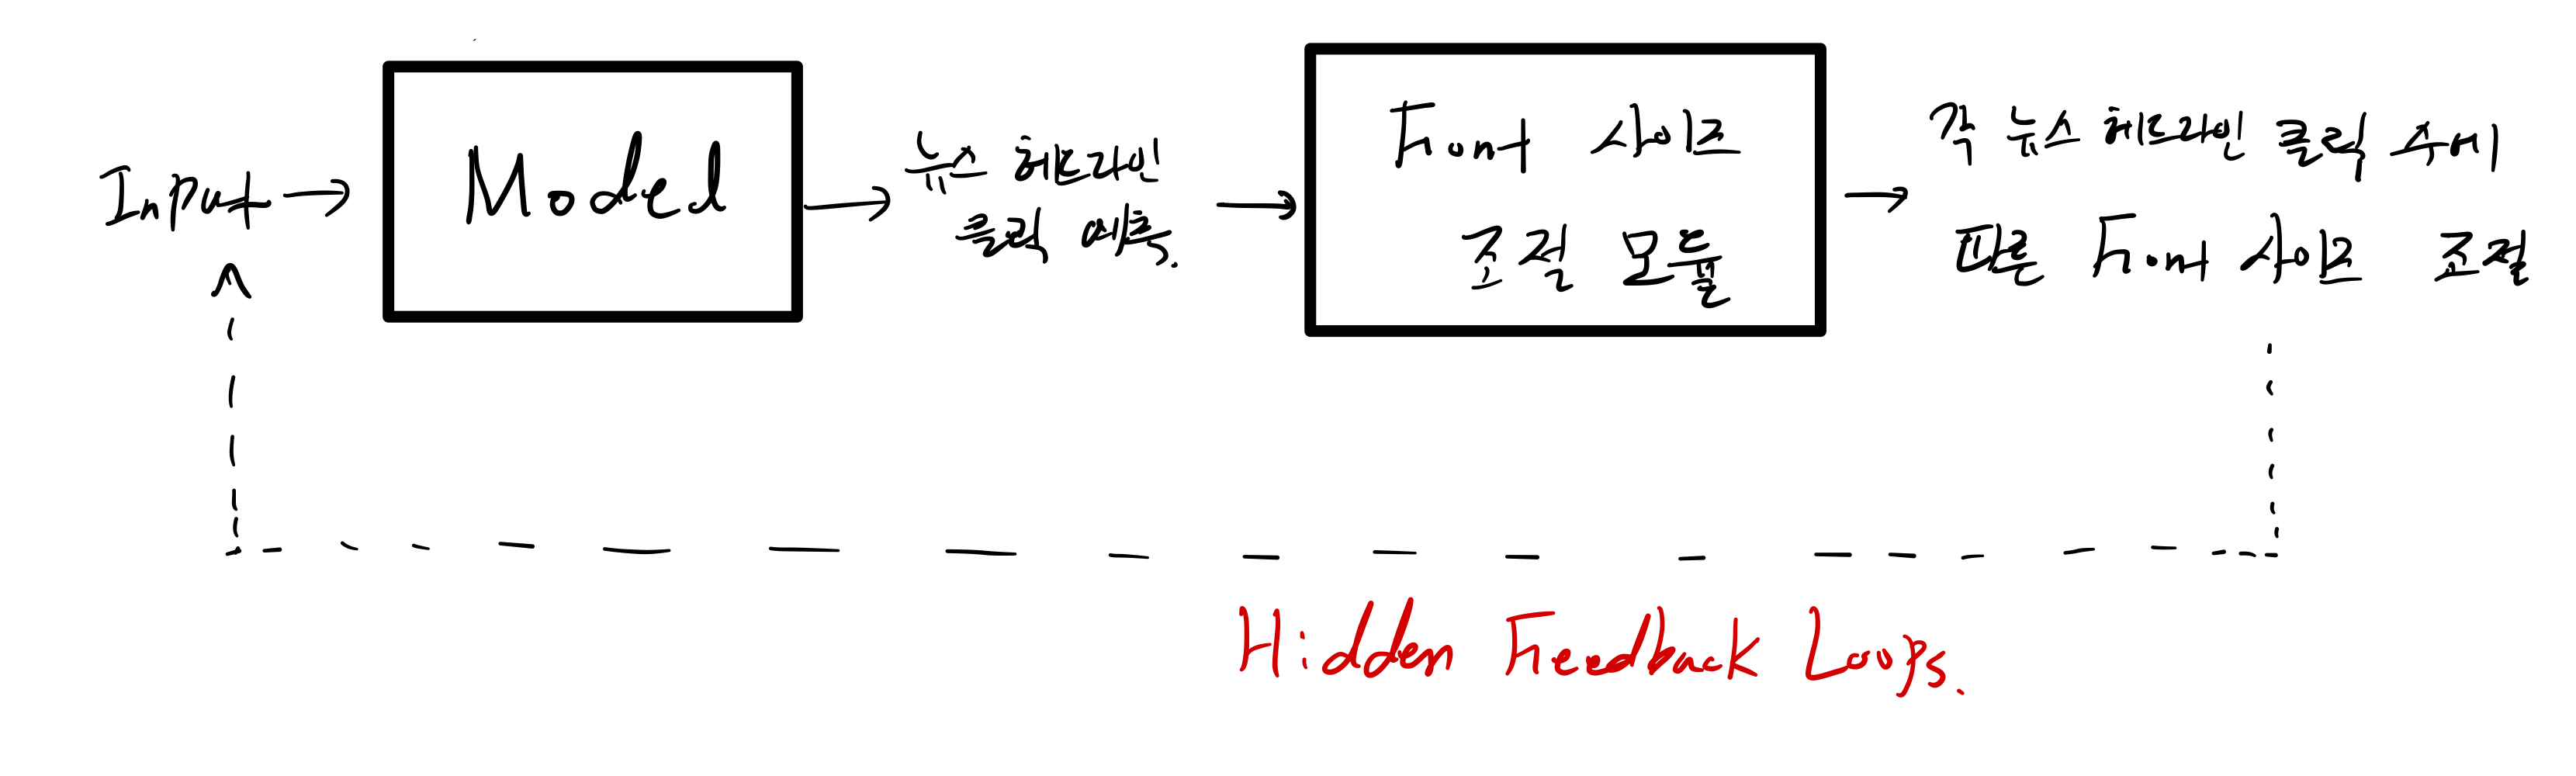 Input
Model
뉴스 헤드라인
클릭 예측.
Font 사이즈
조절 모듈
각 뉴스 헤드라인 클릭 수에
따른 Font 사이즈 조절
Hidden Feedback Loops.